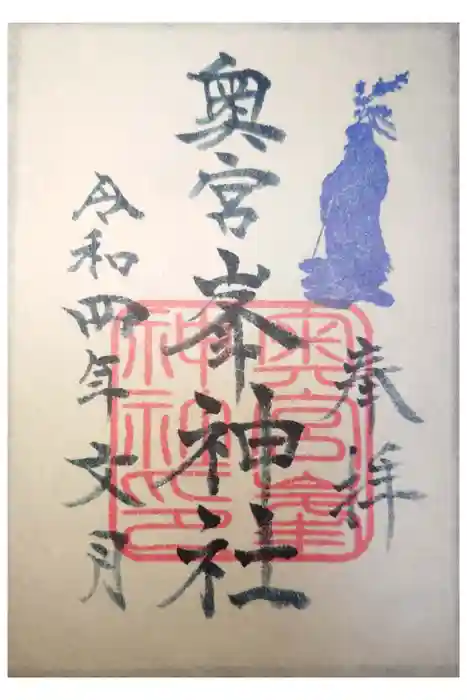 奉拝
奥宮峯神社
令和四年文月
奥宮峯
神社印